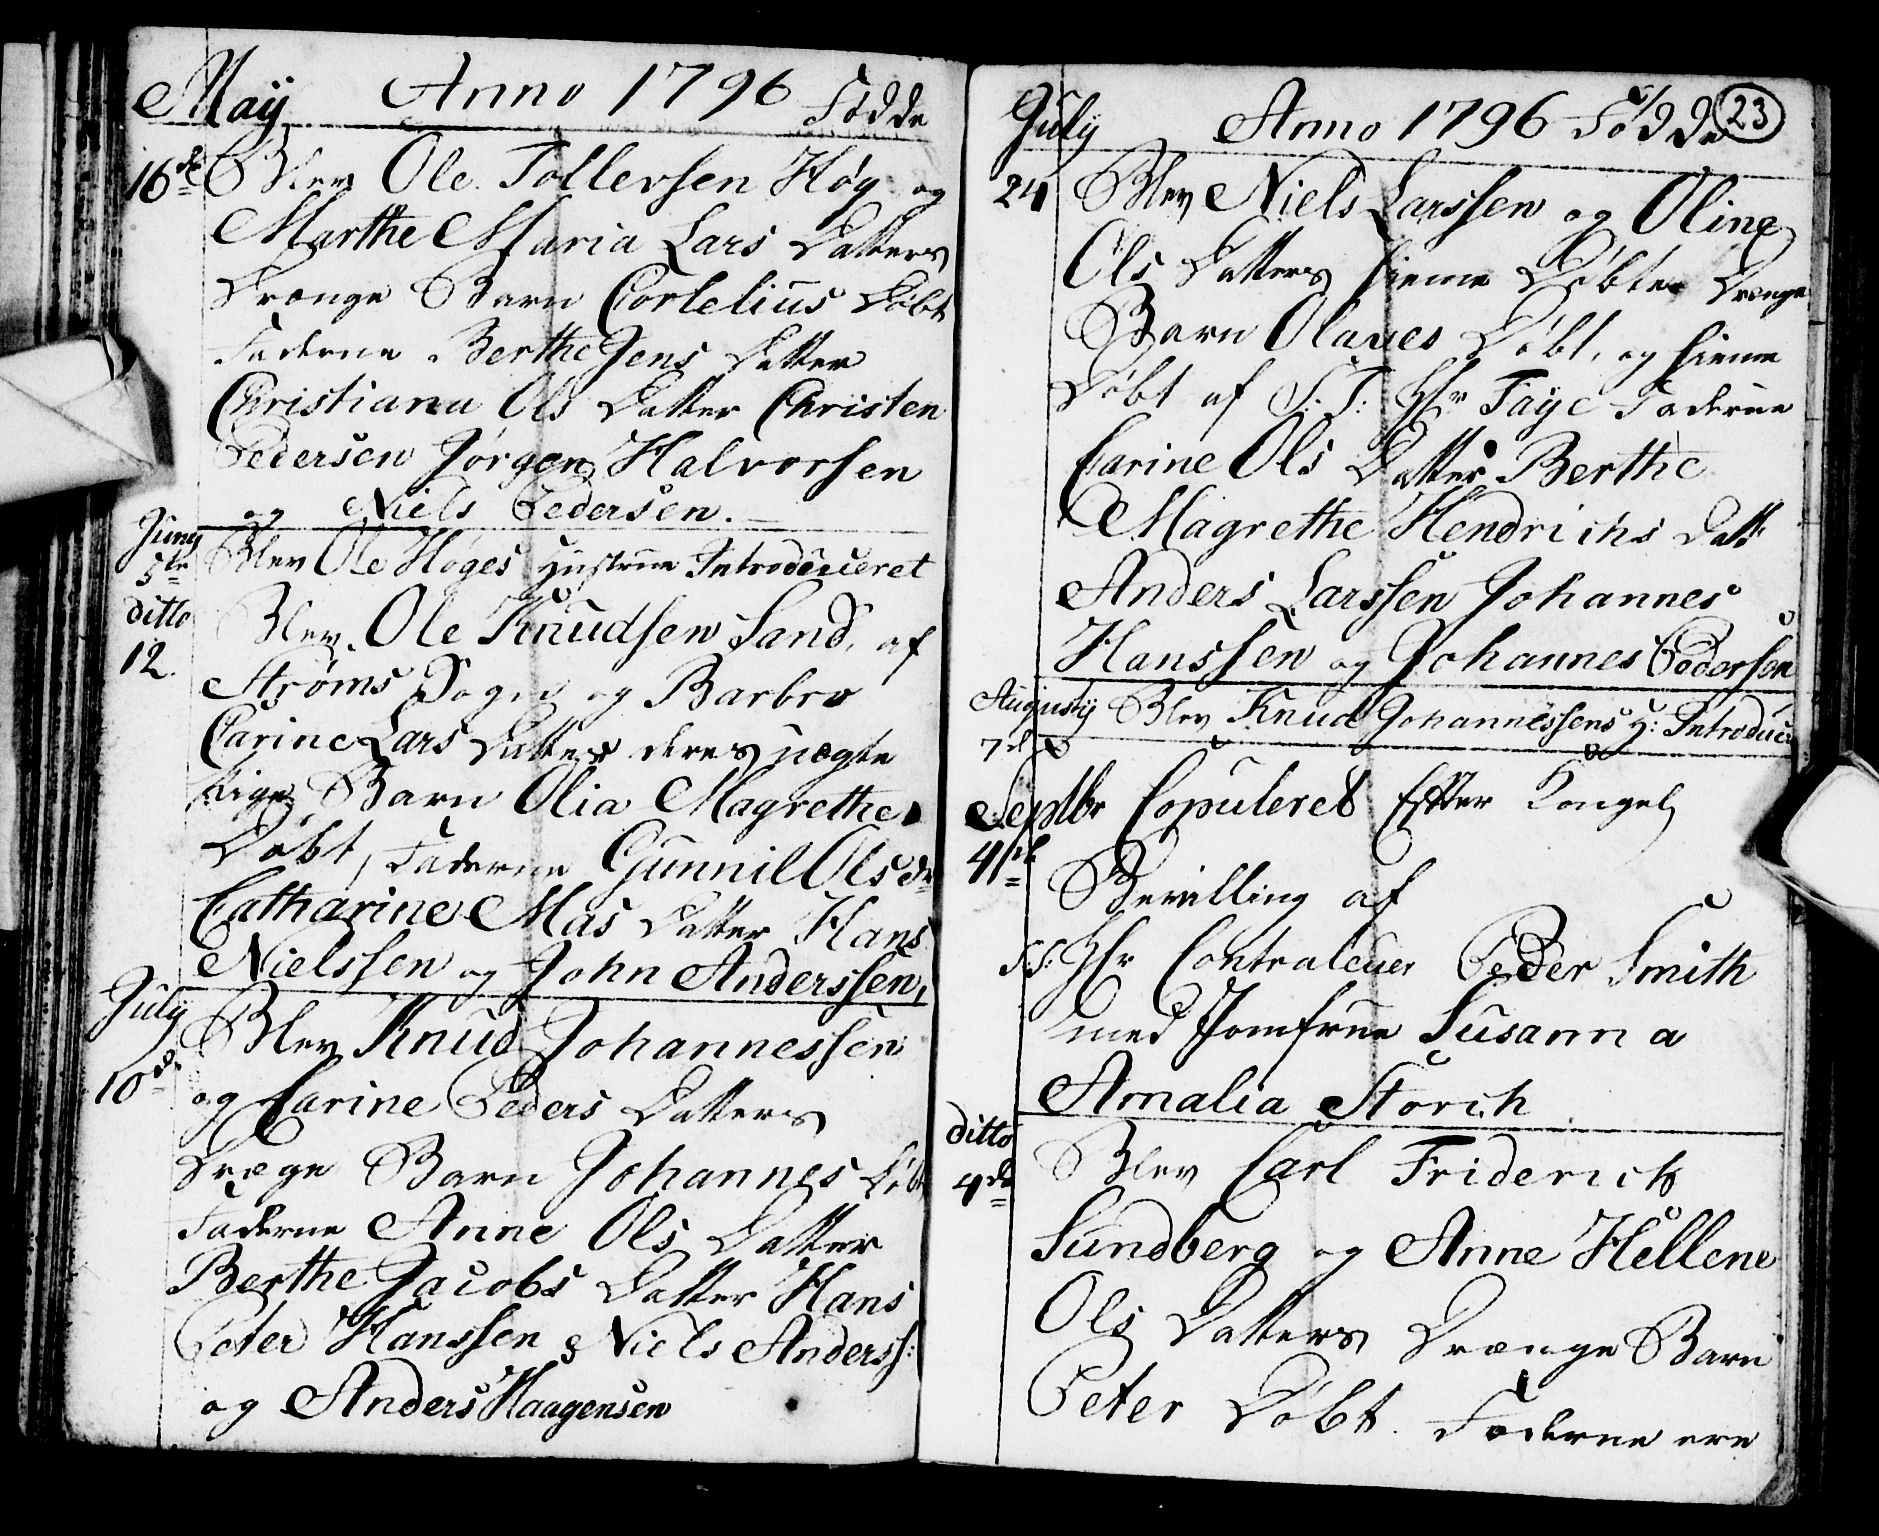 May Anno 1796 Fødde
16de Blev Ole Tollevsen Høy og
Marthe Maria Lars Datters
Drænge Barn Cortelius Døbt
Faderne Berthe Jens Datter
Christiana Ols Datter Christen
Pedersen Jørgen Halvorsen
og Niels Pedersen.
Juny
5te Blev Ole Høges Hustrue Introduceret
ditto
12. Blev Ole Knudsen Sand, af
Strøms Sogn og Barbro
Carine Lars Datter deres uægte
Pige Barn Olia Magrethe
Døbt, Faderne Gunnil Ols dr
Catharine Mas Datter Hans
Nielssen og John Anderssen,
July
10de Blev Knud Johannessen
og Carine Peders Datters
Dræge Barn Johannes Døbt
Faderne Anne Ols Datter
Berthe Jacobs Datter Hans
Peter Hanssen Niels Anderss:
og Anders Haagensen
July Anno 1796 Fødde 23
24 Blev Niels Larssen og Oline
Ols Datters hieme Døbte Drænge
Barn Olaues Døbt, og hieme
Døbt af S. T: Hr Faye Faderne
Carine Ols Datter Berthe
Magrethe Hendrichs Datt:
Anders Larssen Johannes
Hanssen og Johannes Pedersen
Augusty Blev Knud Johannessens H: Introduce
7de
Septbr Copuleret Efter Kongel
4de
Bevilling af
S:S: Hr Contraleuer Peder Smith
med Jomfrue Susanna
Amalia Storch
ditto
4de Blev Carl Friderich
Sundberg og Anne Hellene
Ols Datters Drænge Barn
Peter Døbt. Faderne ere